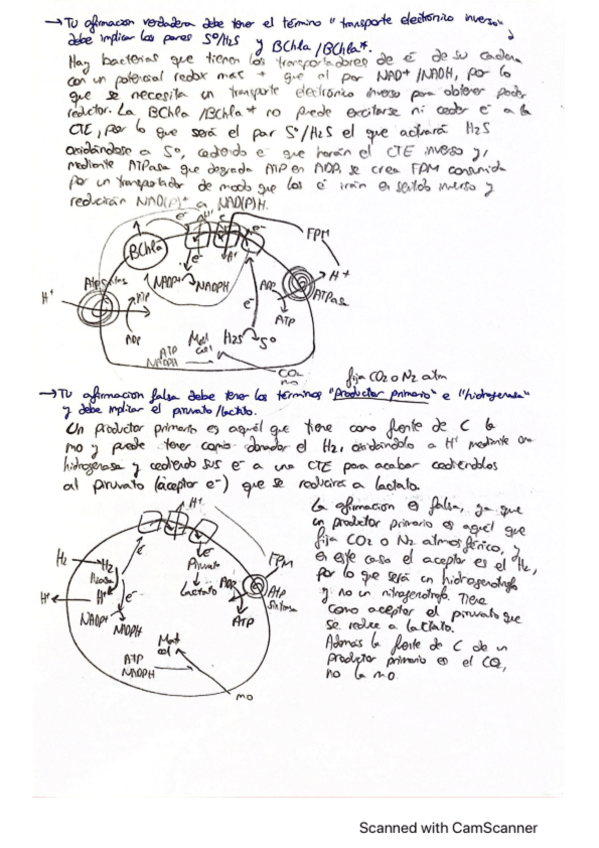 → Tu afirmación verdadera debe tener el término "transporte electrónico inverso" y
debe implicar los pares S⁰/H2S y BChla/BChla*.
Hay bacterias que tienen los transportadores de é de su cadena
con un potencial redox mas + que el par NAD+/NADH, por lo
que se necesita un transporte electrónico inverso para obtener poder
reductor. La BChla/BChla* no puede excitarse ni ceder e⁻ a la
CTE, por lo que será el par S⁰/H2S el que activará H2S
oxidándose a S⁰, cediendo e⁻ que harán el CTE inverso y,
mediante ATPasa que degrada ATP en ADP, se crea FPM consumida
por un transportador de modo que los é irán en sentido inverso y
reducirán NAD(P)+ a NAD(P)H.
e⁻
e⁻
FPM
BChla
e⁻
H+
H+
NADP+ NADPH
ADP
ATPasa
H+
ATP
e⁻
ATP
ADP
Mat
cel
H2S S⁰
ATP
NADPH
CO2
mo
fija CO2 o N2 atm
→ Tu afirmación falsa debe tener los términos "Productor primario" e "hidrogenasa"
y debe implicar el piruvato/lactato.
Un productor primario es aquél que tiene como fuente de C la
mo y puede tener como donador el H2, oxidándolo a H+ mediante una
hidrogenasa y cediendo sus e⁻ a una CTE para acabar cediéndolos
al piruvato (aceptor e⁻) que se reducirá a lactato.
H+
La afirmación es falsa, ya que
un productor primario es aquél que
fija CO2 o N2 atmosférico, y
en este caso el aceptor es el H2,
por lo que será un hidrogenotrofo
y no un nitrogenotrofo. Tiene
como aceptor el piruvato que
se reduce a lactato.
Además la fuente de C de un
productor primario es el CO2,
no la mo.
H2
H2
e⁻
e⁻
Piruvato
Lactato
FPM
ADP
ATP
sintasa
ATP
H+
H+
e⁻
NADP+
NADPH
Mat
cel
ATP
NADPH
mo
Scanned with CamScanner